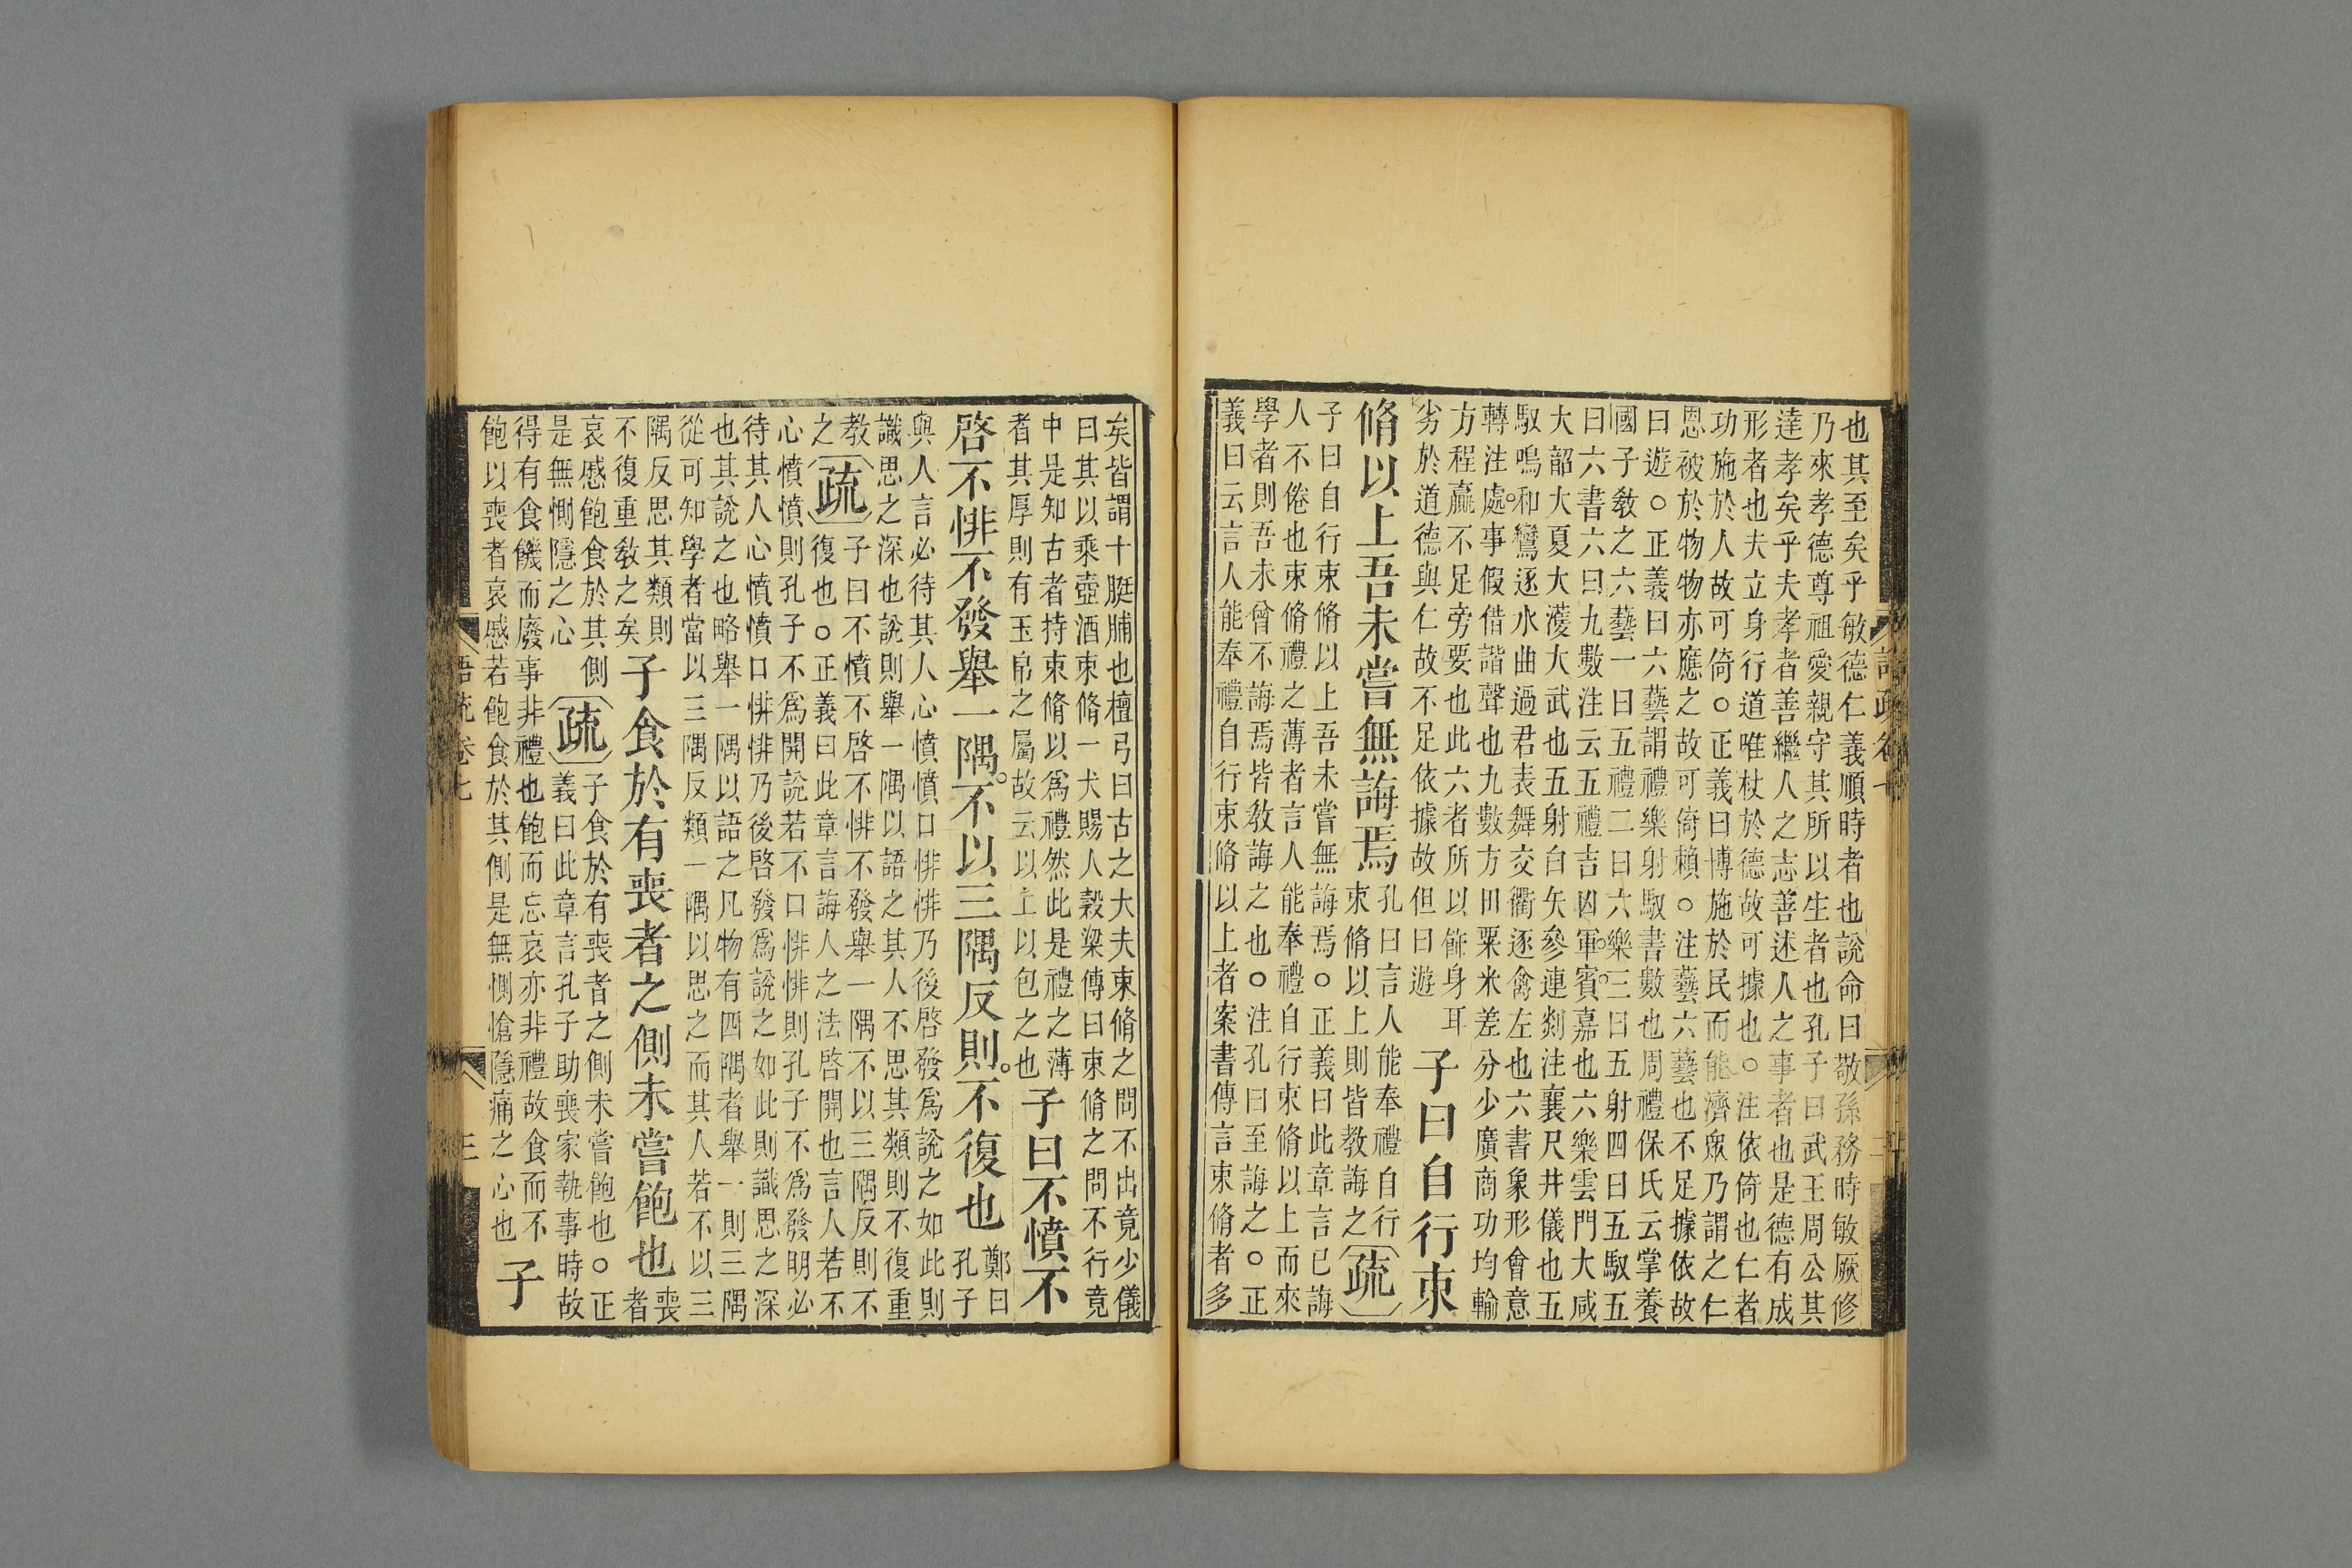 也其至矣乎敏德仁義順時者也說命曰敬孫務時敏厥修
乃來孝德尊祖愛親守其所以生者也孔子曰武王周公其
達孝矣乎夫孝者善繼人之志善述人之事者也是德有成
形者也夫立身行道唯杖於德故可據也○注依倚也仁者
功施於人故可倚○正義曰博施於民而能濟眾乃謂之仁
恩被於物物亦應之故可倚賴○注藝六藝也不足據依故
曰遊○正義曰六藝謂禮樂射馭書數也周禮保氏云掌養
國子教之六藝一曰五禮二曰六樂三曰五射四曰五馭五
曰六書六曰九數注云五禮吉凶軍賓嘉也六樂雲門大咸
大韶大夏大濩大武也五射白矢參連剡注襄尺井儀也五
馭鳴和鸞逐水曲過君表舞交衢逐禽左也六書象形會意
轉注處事假借諧聲也九數方田粟米差分少廣商功均輸
方程贏不足旁要也此六者所以飾身耳
劣於道德與仁故不足依據故但曰遊
子曰自行束
脩以上吾未嘗無誨焉
孔曰言人能奉禮自行
束脩以上則皆教誨之
疏
子曰自行束脩以上吾未嘗無誨焉○正義曰此章言己誨
人不倦也束脩禮之薄者言人能奉禮自行束脩以上而來
學者則吾未曾不誨焉皆教誨之也○注孔曰至誨之○正
義曰云言人能奉禮自行束脩以上者案書傳言束脩者多
矣皆謂十脡脯也檀弓曰古之大夫束脩之問不出竟少儀
曰其以乘壺酒束脩一犬賜人穀梁傳曰束脩之問不行竟
中是知古者持束脩以爲禮然此是禮之薄
者其厚則有玉帛之屬故云以上以包之也
子曰不憤不
啓不悱不發舉一隅。不以三隅反則。不復也
鄭曰
孔子
與人言必待其人心憤憤口悱悱乃後啓發爲說之如此則
識思之深也說則舉一隅以語之其人不思其類則不復重
教
之
疏
子曰不憤不啓不悱不發舉一隅不以三隅反則不
復也○正義曰此章言誨人之法啓開也言人若不
心憤憤則孔子不爲開說若不口悱悱則孔子不爲發明必
待其人心憤憤口悱悱乃後啓發爲說之如此則識思之深
也其說之也略舉一隅以語之凡物有四隅者舉一則三隅
從可知學者當以三隅反類一隅以思之而其人若不以三
隅反思其類則
不復重教之矣
子食於有喪者之側未嘗飽也
喪
者
哀慼飽食於其側
是無惻隱之心
疏
子食於有喪者之側未嘗飽也○正
義曰此章言孔子助喪家執事時故
得有食饑而廢事非禮也飽而忘哀亦非禮故食而不
飽以喪者哀慼若飽食於其側是無惻愴隱痛之心也
子